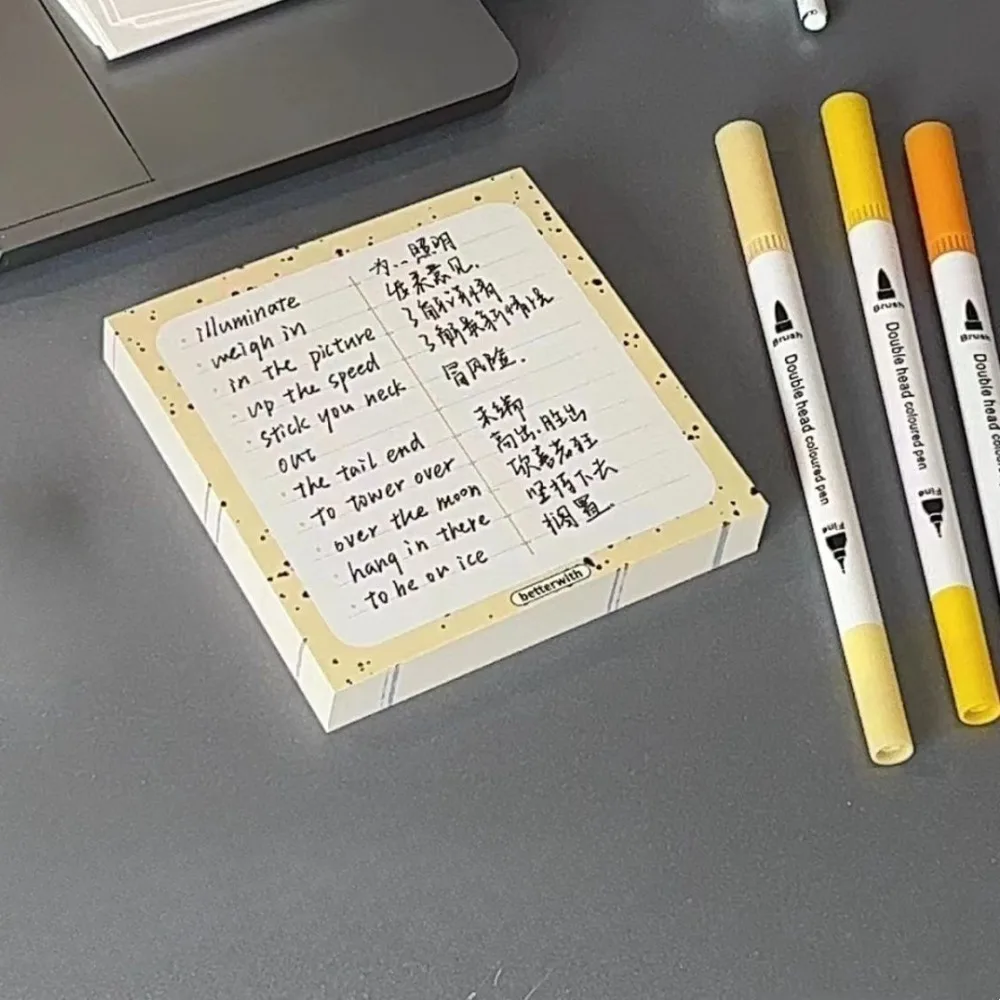 illuminate 为...照明
weigh in 发表意见.
in the picture 了解详情
up the speed 了解最新情况
stick you neck 冒风险.
out
the tail end 末端
to tower over 高出.胜出
over the moon 欣喜若狂
hang in there 坚持下去
to be on ice 搁置
betterwith
Brush Double head coloured pen Fine
Brush Double head coloured pen Fine
Brush Double head coloured